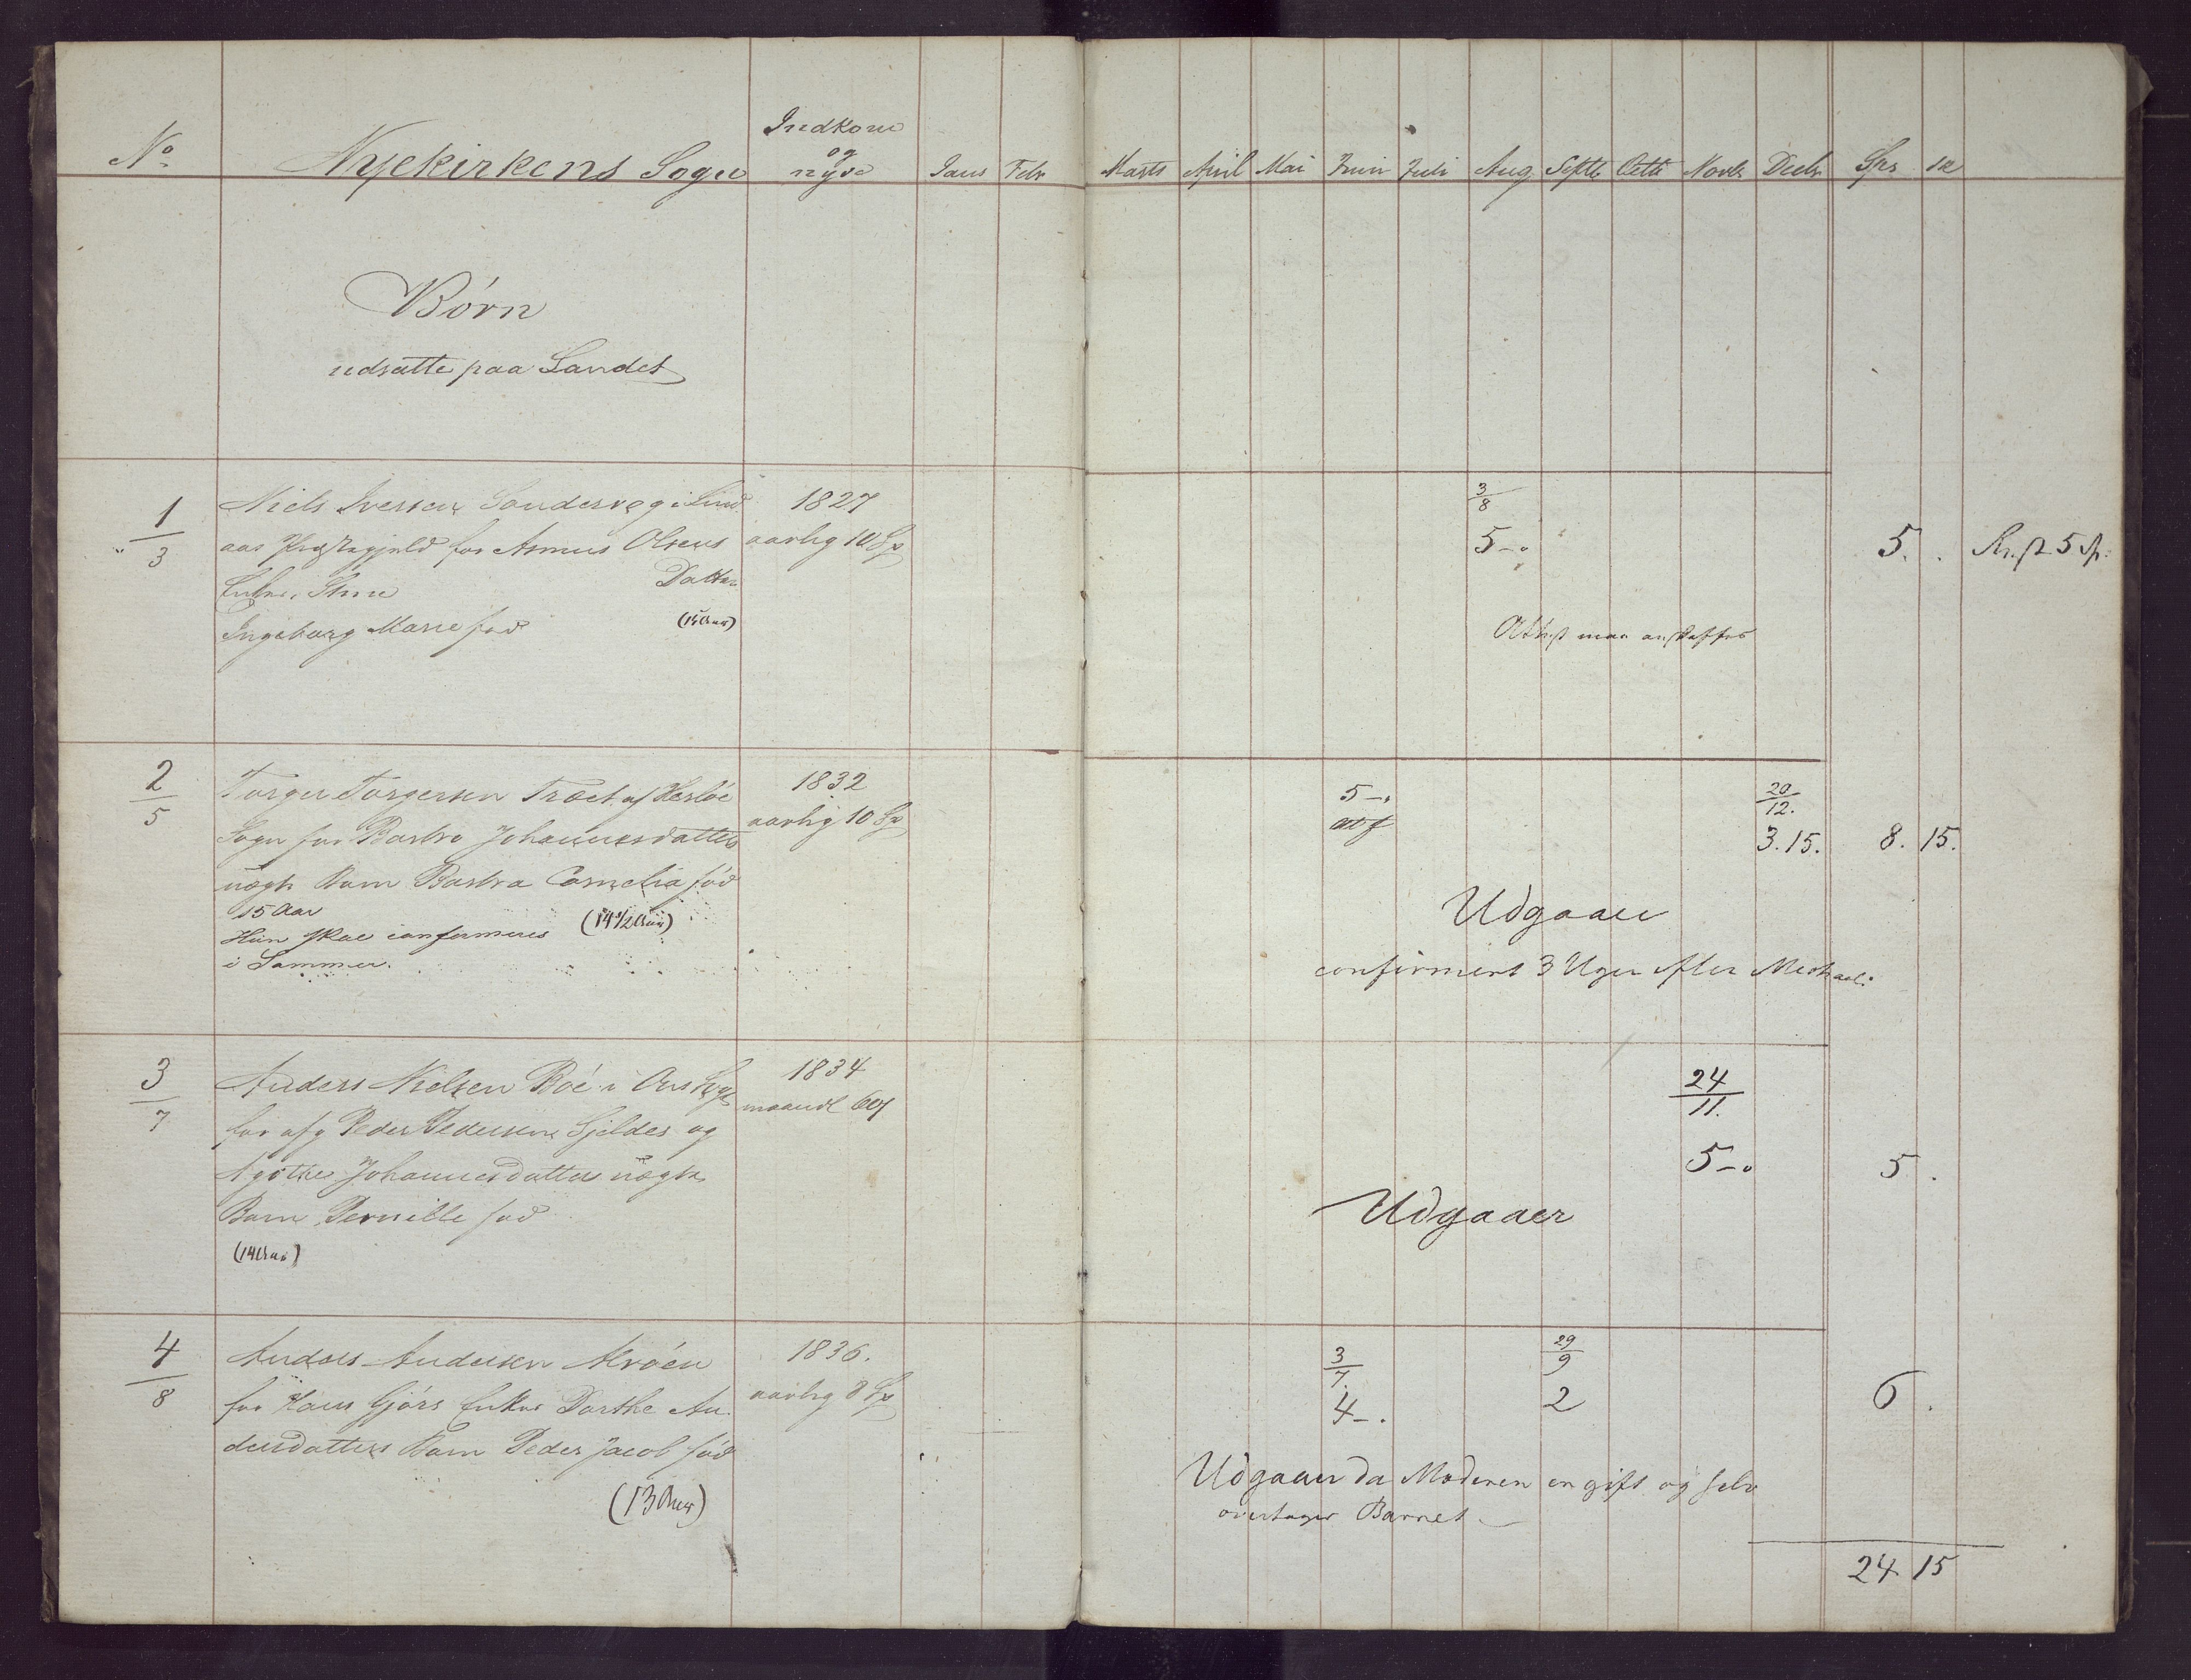 No
Nyekirkens Sogn
Indkom
og
nyde
Janr
Febr
Marts
April
Mai
Juni
Juli
Aug
Septb
Octb
Novb
Decbr
Sps
sk
Børn
udsatte paa Landet
1
3
Niels Iversen Sondesvog i Lind
aas Præstegjeld for Asmus Olsens
Datter
Ingeborg Marie fød
(15 Aar)
1827
aarlig 10 Sp
3
8
5 -.
Attest maa anskaffes
5. .
Rest 5 Sp:
2
5
Torger Torgersen Træet af Herløe
Sogn for Barbro Johannesdatters
uægte Barn Barbra Cornelia fød
15 Aar
(14 1/2 Aar)
Hun skal confirmeres
i Sommer.
1832
aarlig 10 Sp
5 -.
20
12.
3.15.
8. 15.
Udgaaer
confirmert 3 Uger efter Michaeli
3
7
Anders Nielsen Bøe i Aus Sogn
for afg Peder Pedersen Gjeldes og
Agothe Johannesdatters uægte
Barn Pernille fød
(14 Aar)
1834
maandl 60 s
24
11.
5 -.
5 .
Udgaaer
4
8
Anders Andersen Alvøen
for Hans Gjørs Enkes Dorthe An
dersdatters Barn Peder Jacob fød
(13 Aar)
1836.
aarlig 8 Sp
3
7.
4 -.
29
9
2
6 .
Udgaaer da Moderen er gift og selv
overtager Barnet
24 15